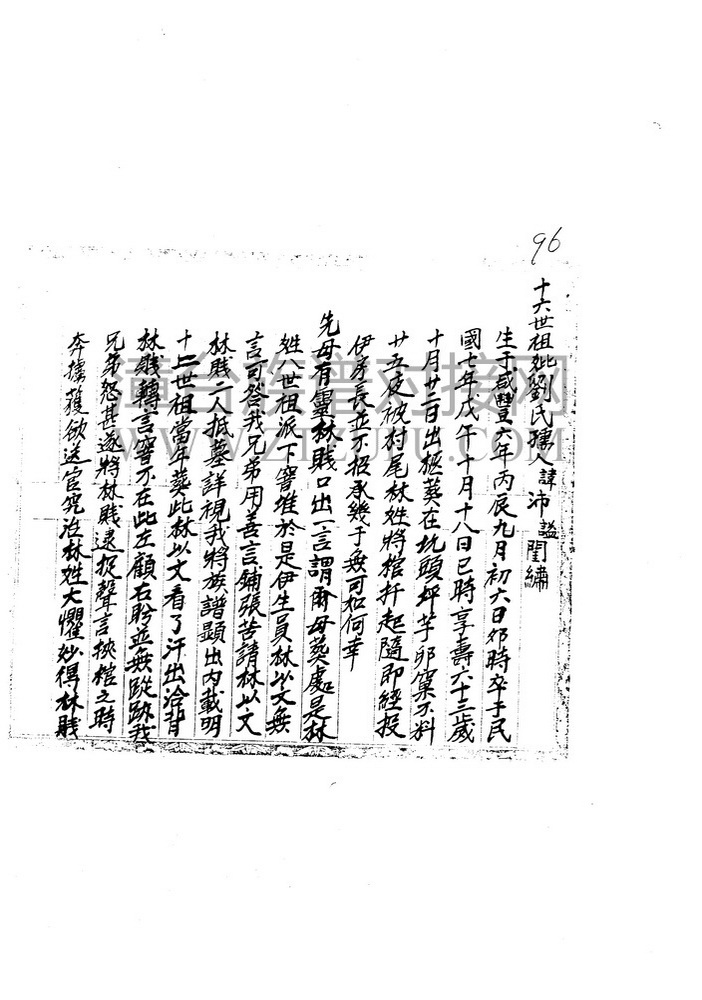 96
十六世祖妣劉氏孺人諱沛謚閨繡
生于咸豐六年丙辰九月初六日卯時卒于民
國七年戊午十月十八日巳時享壽六十三歲
十月廿二日出柩葬在坑頭坪芋卵窠不料
廿五夜被村尾林姓將棺扦起隨即經投
伊房長並不招承幾于無可如何幸
先母有靈林賤口出一言謂爾母葬處是林
姓八世祖派下窨堆於是伊生員林以文無
言可答我兄弟用善言鋪張苦請林以文
林賤二人抵墓詳視我將族譜顯出內載明
十二世祖當年葬此林以文看了汗出洽背
林賤轉言窨不在此左顧右盼並無蹤跡我
兄弟怒甚遂將林賤逮捉聲言挾棺之時
奔據獲欲送官究治林姓大懼妙得林賤
漳台族譜對接網
WWW.ZTZUPU.COM